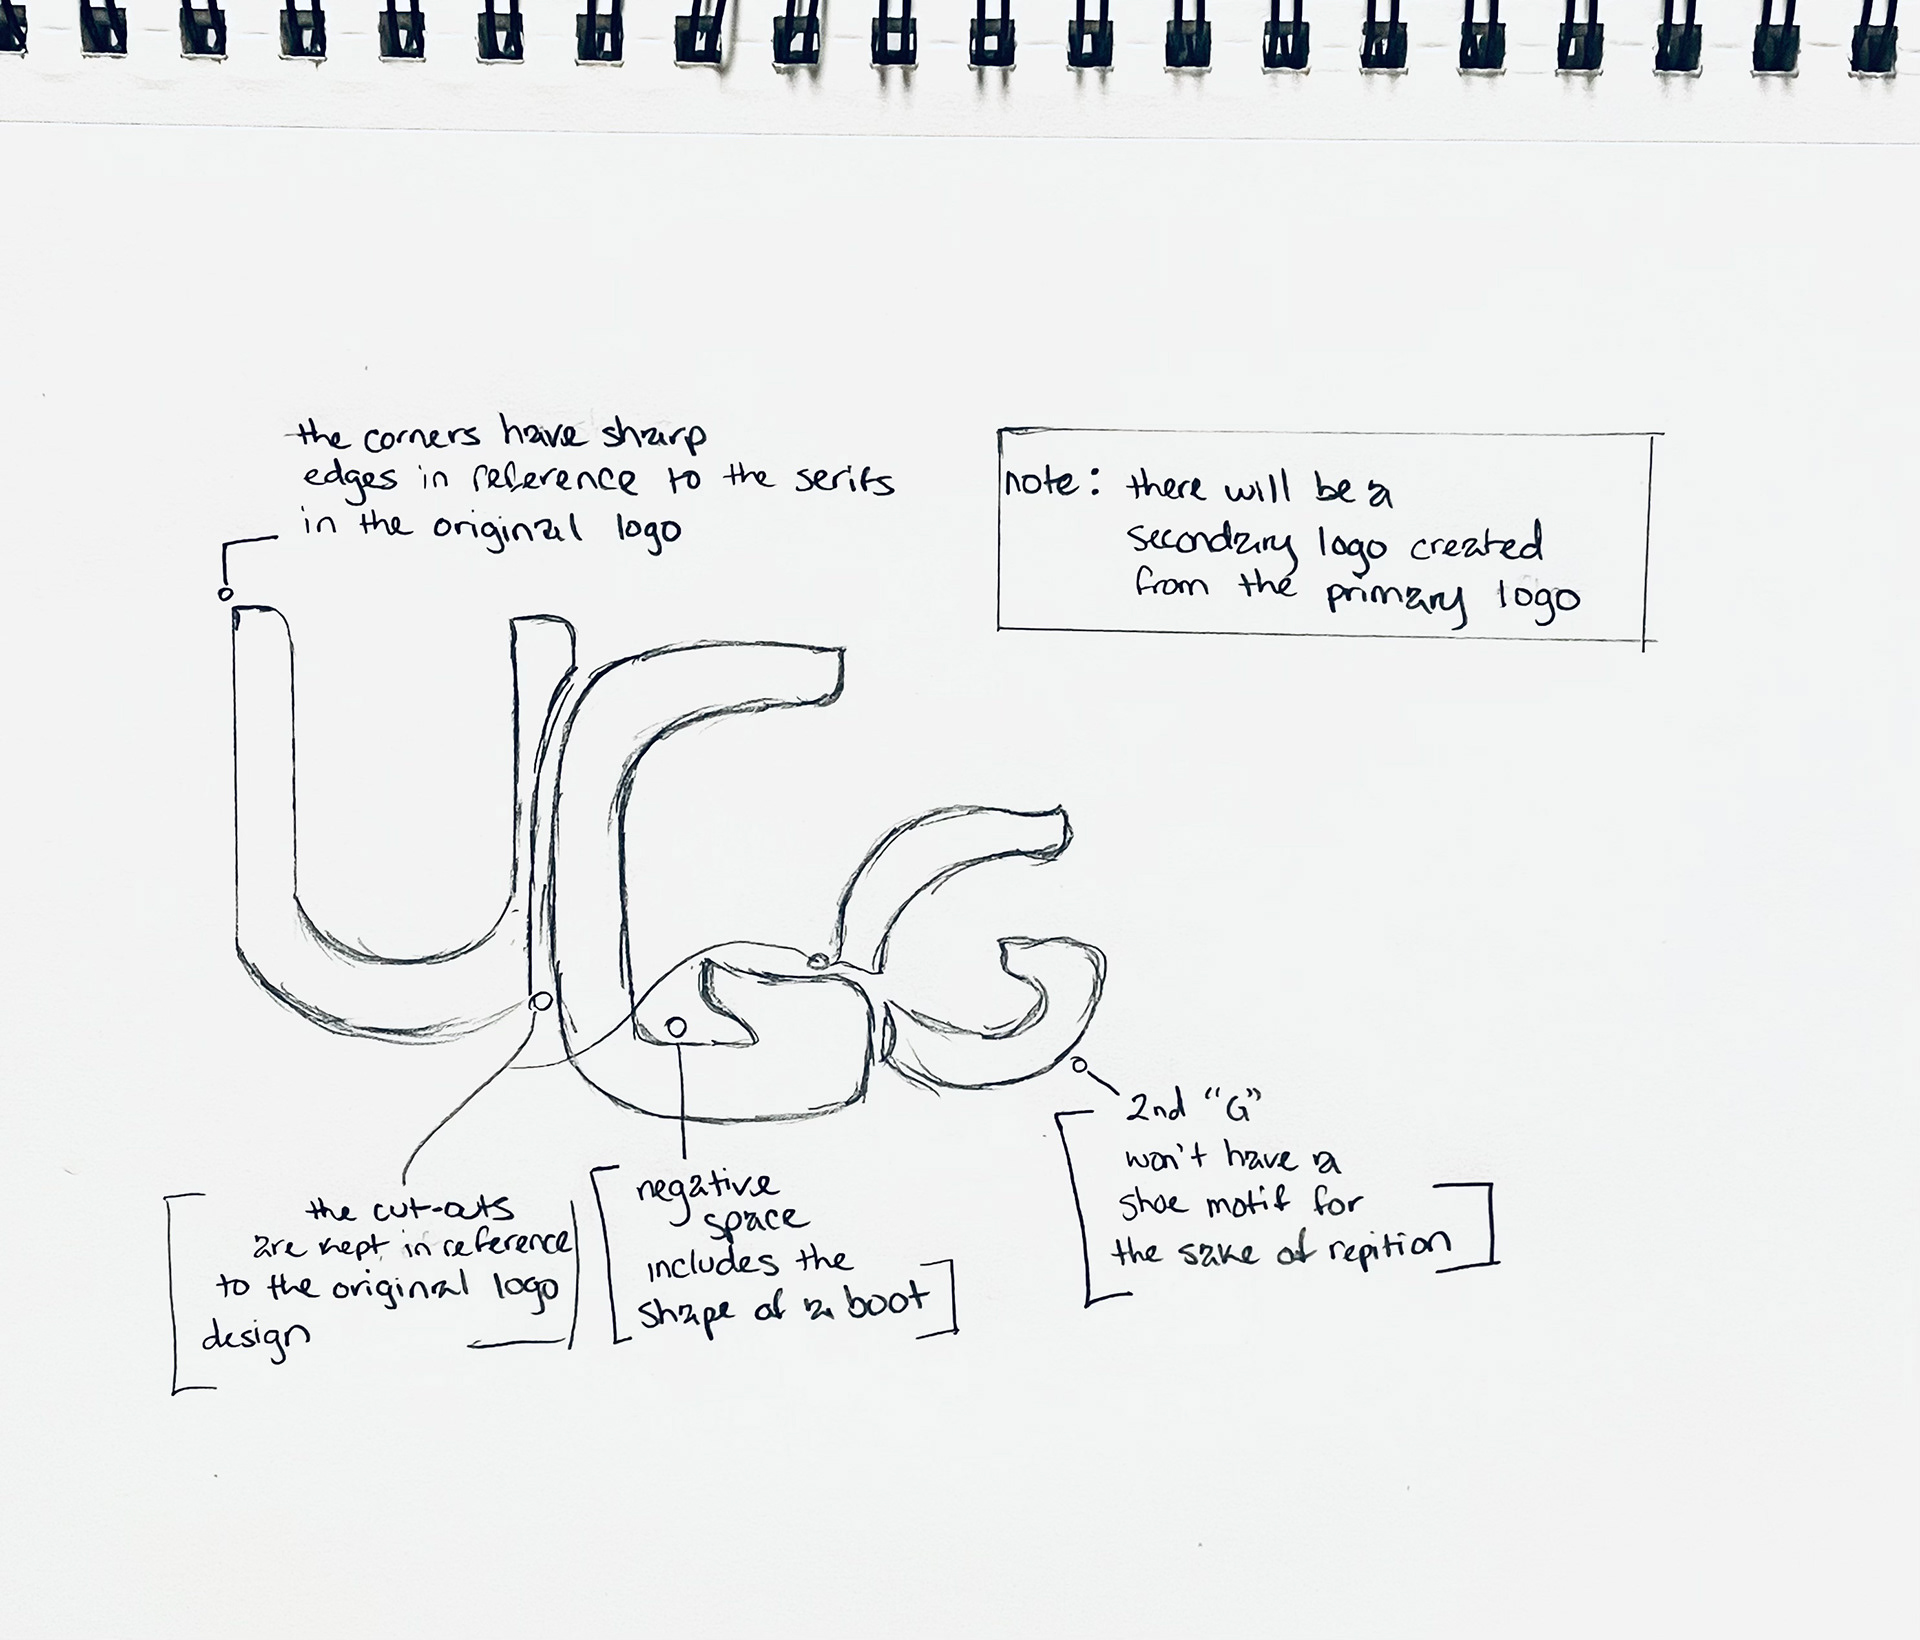 the corners have sharp
edges in reference to the serifs
in the original logo
note: there will be a
secondary logo created
from the primary logo
UGG
the cut-outs
are kept in reference
to the original logo
design
negative
space
includes the
shape of a boot
2nd "G"
won't have a
shoe motif for
the sake of repition